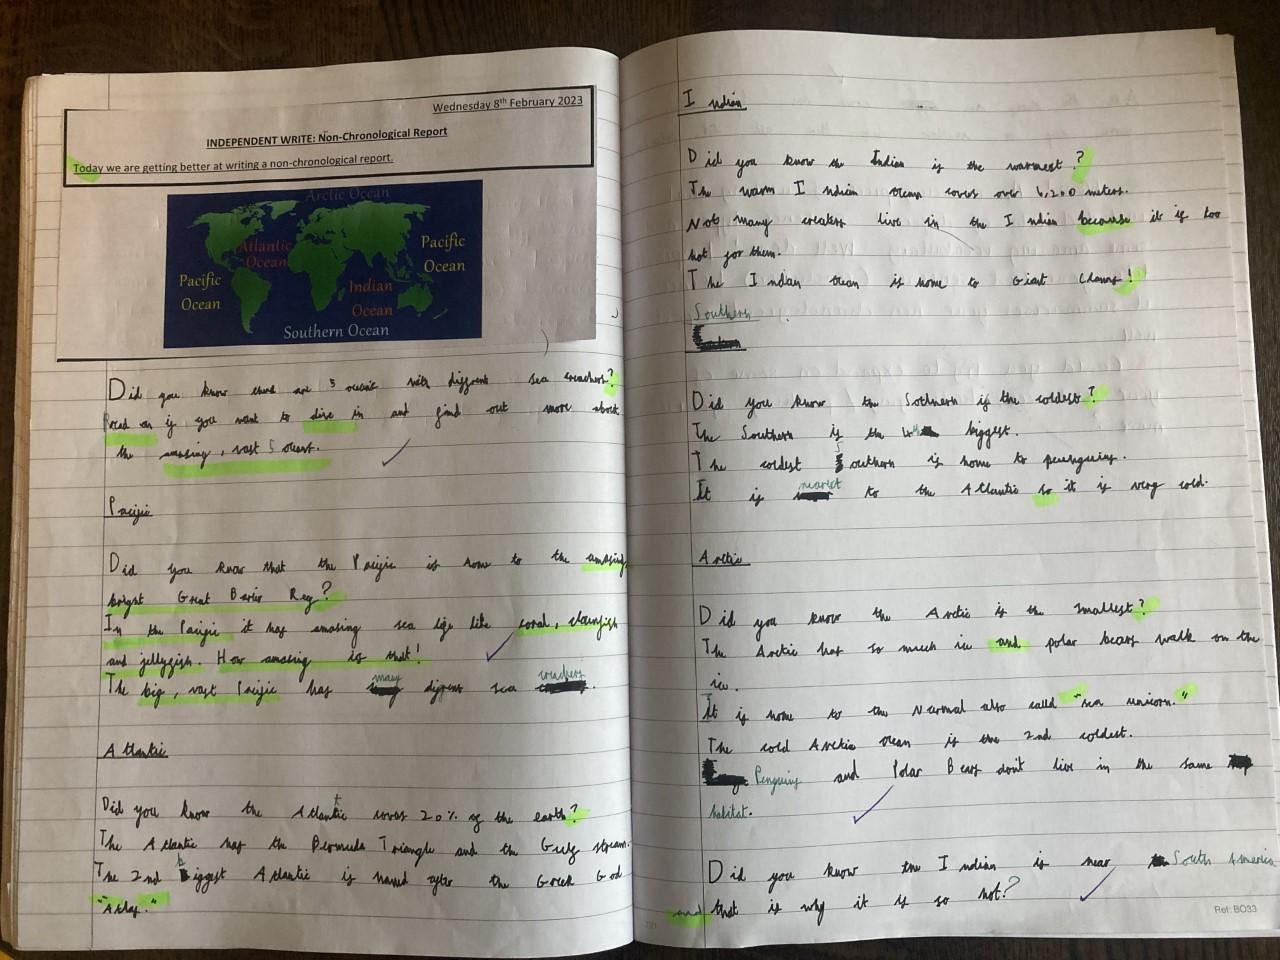 Wednesday 8th February 2023
INDEPENDENT WRITE: Non-Chronological Report
Today we are getting better at writing a non-chronological report.
Arctic Ocean
Atlantic
Ocean
Pacific
Ocean
Pacific
Ocean
Indian
Ocean
Southern Ocean
Did you know there are 5 oceans with different sea
Read on if you want to dive in and find out more about
the amazing, vast 5 ocean.
Pacific
Did you know that the Pacific is home to the amazing
bright Great Barier Reef?
In the Pacific it has amazing sea life like coral, clownfish
and jellyfish. How amazing is that!
The big, vast Pacific has many sea
Atlantic
Did you know the Atlantic covers 20% of the earth?
The Atlantic has the Bermuda Triangle and the Gulf stream.
The 2nd biggest Atlantic is named after the Greek God
"Atlas."
Indian
Did you know the Indian is the warmest?
The warm Indian ocean covers over meters.
Not many live in the Indian because it is too
hot for them.
The Indian ocean is home to Giant Clams!
Southern
Did you know the is the coldest?
The Southern is the 4th biggest.
The coldest Southern is home to
It is nearest to the Atlantic so it is very cold.
Arctic
Did you know the Arctic is the smallest?
The Arctic has so much ice and polar bears walk on the
ice.
It is home to the also called "sea unicorn."
The cold Arctic ocean is the 2nd coldest.
Penguins and Polar Bears don't live in the same
habitat.
Did you know the Indian is near South America
and that is why it is so hot?
Ref: BO33